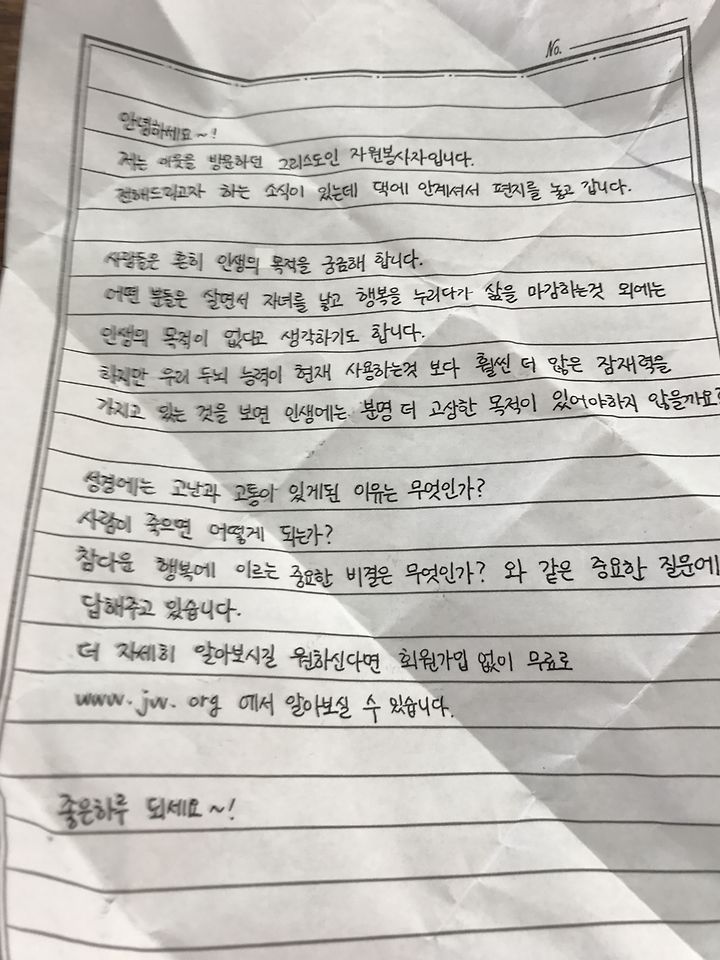 No.
안녕하세요~!
저는 이웃을 방문하던 그리스도인 자원봉사자입니다.
전해드리고자 하는 소식이 있는데 댁에 안계셔서 편지를 놓고 갑니다.
사람들은 흔히 인생의 목적을 궁금해 합니다.
어떤 분들은 살면서 자녀를 낳고 행복을 누리다가 삶을 마감하는것 외에는
인생의 목적이 없다고 생각하기도 합니다.
하지만 우리 두뇌 능력이 현재 사용하는것 보다 훨씬 더 많은 잠재력을
가지고 있는 것을 보면 인생에는 분명 더 고상한 목적이 있어야하지 않을까요?
성경에는 고난과 고통이 있게된 이유는 무엇인가?
사람이 죽으면 어떻게 되는가?
참다운 행복에 이르는 중요한 비결은 무엇인가? 와 같은 중요한 질문에
답해주고 있습니다.
더 자세히 알아보시길 원하신다면 회원가입 없이 무료로
www.jw.org 에서 알아보실 수 있습니다.
좋은하루 되세요~!